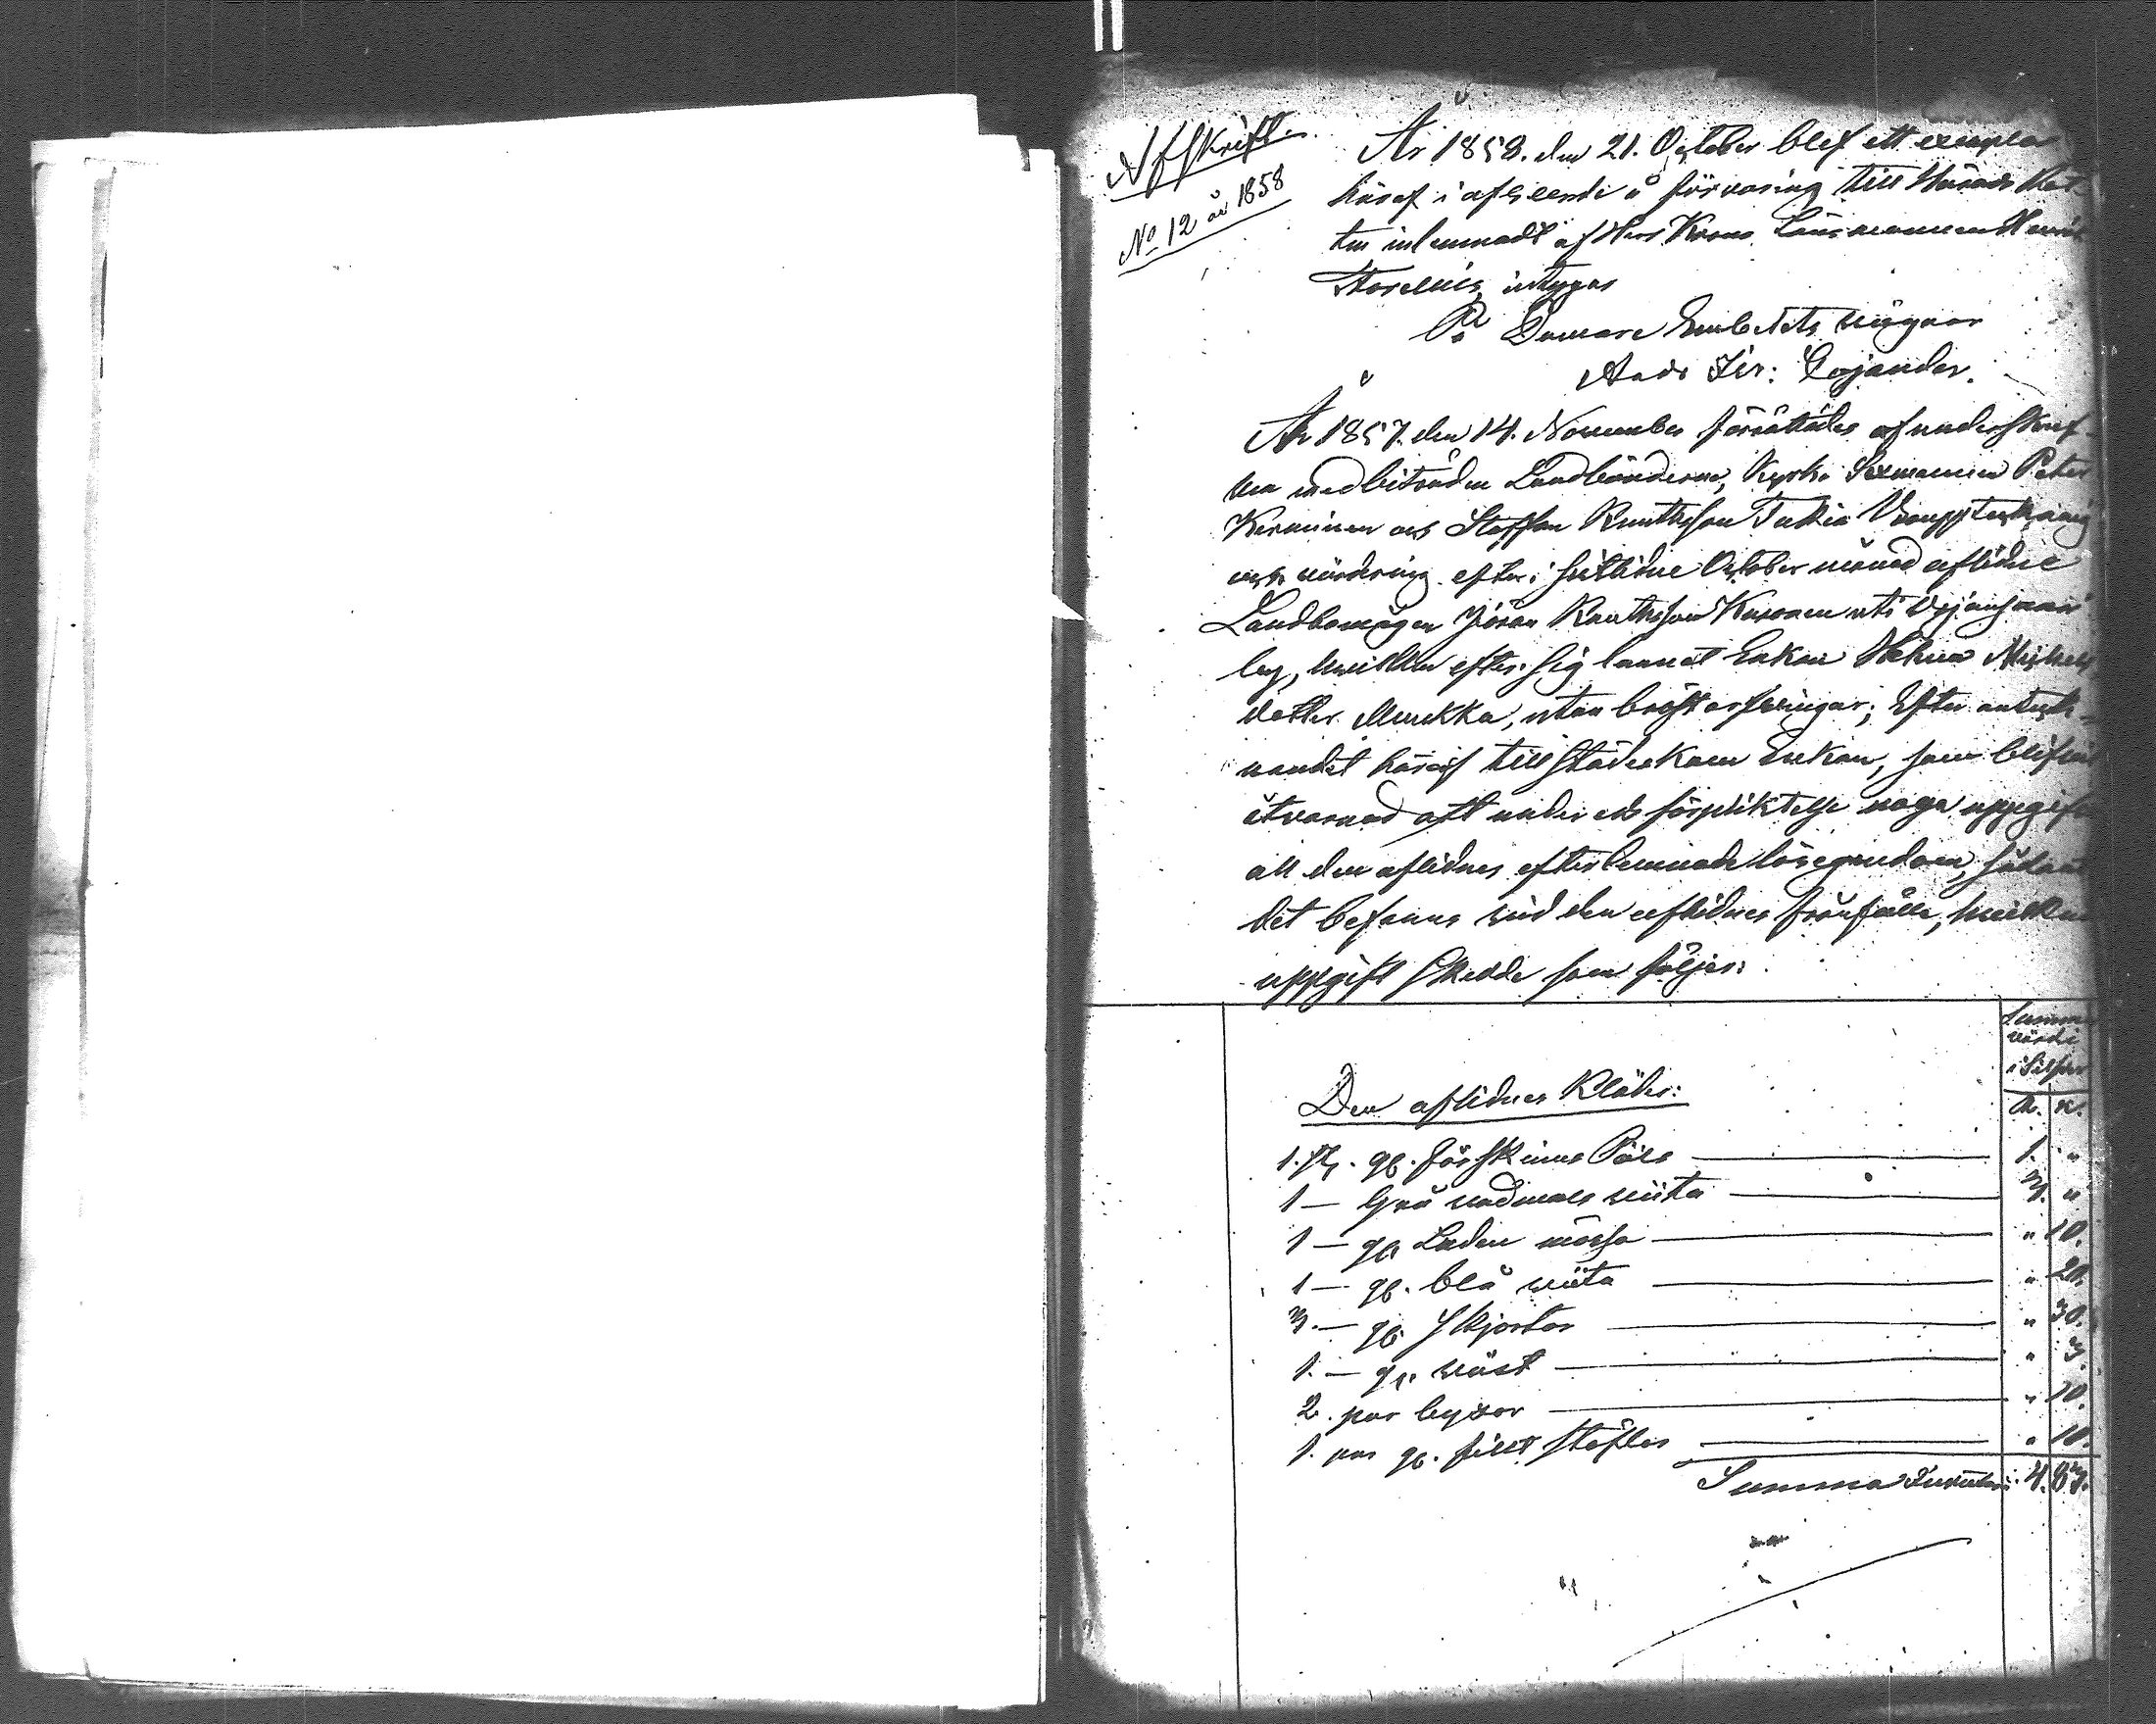 Afskrift.
No 12 år 1858
År 1858. den 21. October blef ett exemplar
häraf i afseende å förvaring till Härads Rät-
ten inlemnadt af Herr Krono Länsmannen Henrik
intygar
På Domare Embetets vägnar
Cajander.
År 1857. den 14. November förrättades af underskref-
ven med biträden Landbönderne, Kyrko Sexmannen Peter
Kerminen och Staffan Knuthsson Tukia Bouppteckning
och värdering efter i sistlidne October månad aflidne
Landbomågen Jöran Knuthsson uti
by, hvilken efter sig lemnat Enkan Helena Michels
dotter Muukka, utan bröstarfvingar; Efter anteck-
nandet häraf tillstädeskom Enkan, som blifvit
åtvarnad att under eds förpliktelse noga uppgifva
all den aflidnes efterlemnade lösegendom, sådan
det befanns vid den aflidnes frånfälle, hvilken
uppgift skedde som följer:
Summa
värde
i Silfver
R. K.
Den aflidnes Kläder:
1. st. gl. fårskinns Päls 1. "
1 — Grå vadmals 3. "
1 — gl. Luden mössa " 10.
1 — gl. blå " 20.
3. — gl. Skjortor " 30.
1. — gl. väst " 3.
2. par byxor " 10.
1. par gl. stöflor " 10.
Summa 4. 83.